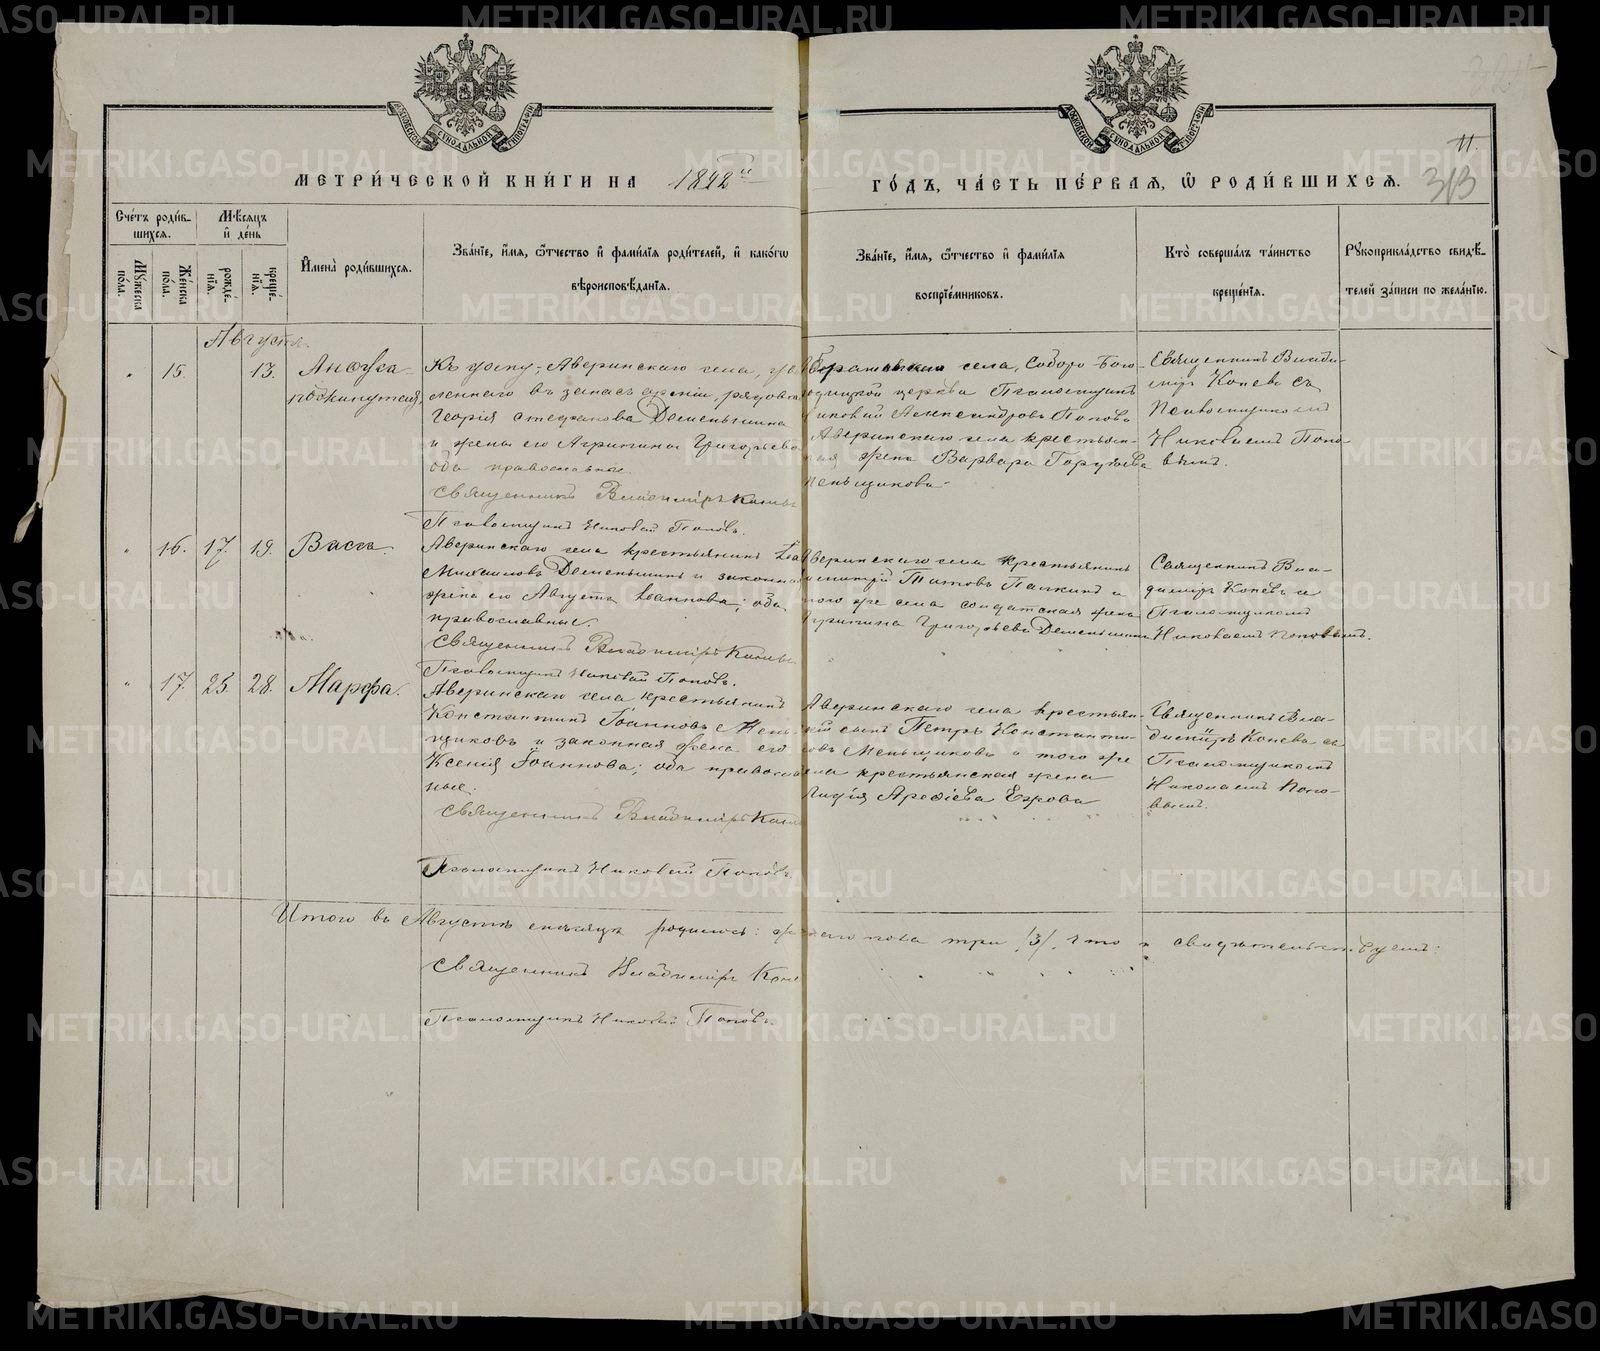 МОСКОВСКОЙ СѴНОДАЛЬНОЙ ТѴПОГРАФІИ
МОСКОВСКОЙ СѴНОДАЛЬНОЙ ТѴПОГРАФІИ
11.
МЕТРИ́ЧЕСКОЙ КНИ́ГИ НА
ГО́ДЪ, ЧА́СТЬ ПЕ́РВАЯ, Ѽ РОДИ́ВШИХСЯ.
313
Сче́тъ роди́в-
шихся.
Му́жеска по́ла.
Же́нска по́ла.
Мѣ́сяцъ и҆ де́нь
рожде́нїя.
креще́нїя.
И҆мена̀ роди́вшихся.
Зва́нїе, и҆́мя, ѻ҆́тчество и҆ фами́лїя роди́телей, и҆ како́гѡ
вѣроисповѣ́данїя.
Зва́нїе, и҆́мя, ѻ҆́тчество и҆ фами́лїя
воспрїе́мниковъ.
Кто̀ соверша́лъ та́инство
креще́нїя.
Рꙋкоприкла́дство свидѣ́-
телей за́писи по жела́нїю.
Августа.
„ 15. 13.
Къ дому, Аверинскаго села,
въ запасъ арміи, рядоваго
Георгія Стефанова Деменьшина
и жены его Агрипины Григорьевой
оба православные.
Священникъ Владиміръ Коневъ
Псаломщикъ Николай Поповъ.
села, Соборо-Бого-
родицкой церкви Псаломщикъ
Николай Александровъ Поповъ
Аверинскаго села крестьян-
ская жена Варвара
Священникъ Влади-
міръ Коневъ съ
Псаломщикомъ
Николаемъ Попо-
вымъ.
„ 16. 17. 19. Васса.
Аверинскаго села крестьянинъ
Михаиловъ Деменьшинъ и законная
жена его Августа Іоаннова; оба
православные.
Священникъ Владиміръ Коневъ
Псаломщикъ Николай Поповъ.
Аверинскаго села крестьянинъ
Димитрій Титовъ Палкинъ и
того же села солдатская жена
Агрипина Григорьева Деменьшина
Священникъ Вла-
диміръ Коневъ съ
Псаломщикомъ
Николаемъ Поповымъ.
„ 17. 25. 28. Марфа.
Аверинскаго села крестьянинъ
Константинъ Іоанновъ Мень-
щиковъ и законная жена его
Ксенія Іоаннова; оба православ-
ные.
Священникъ Владиміръ Коневъ
Псаломщикъ Николай Поповъ.
Аверинскаго села крестьян-
скій сынъ Петръ Константи-
новъ Меньщиковъ и того же
села крестьянская жена
Лидія Арефіева Ежова
Священникъ Вла-
диміръ Коневъ съ
Псаломщикомъ
Николаемъ Попо-
вымъ.
Итого въ Августѣ мѣсяцѣ родилось: женскаго пола три /3/, что и свидѣтельствуемъ:
Священникъ Владиміръ Коневъ
Псаломщикъ Николай Поповъ.
METRIKI.GASO-URAL.RU